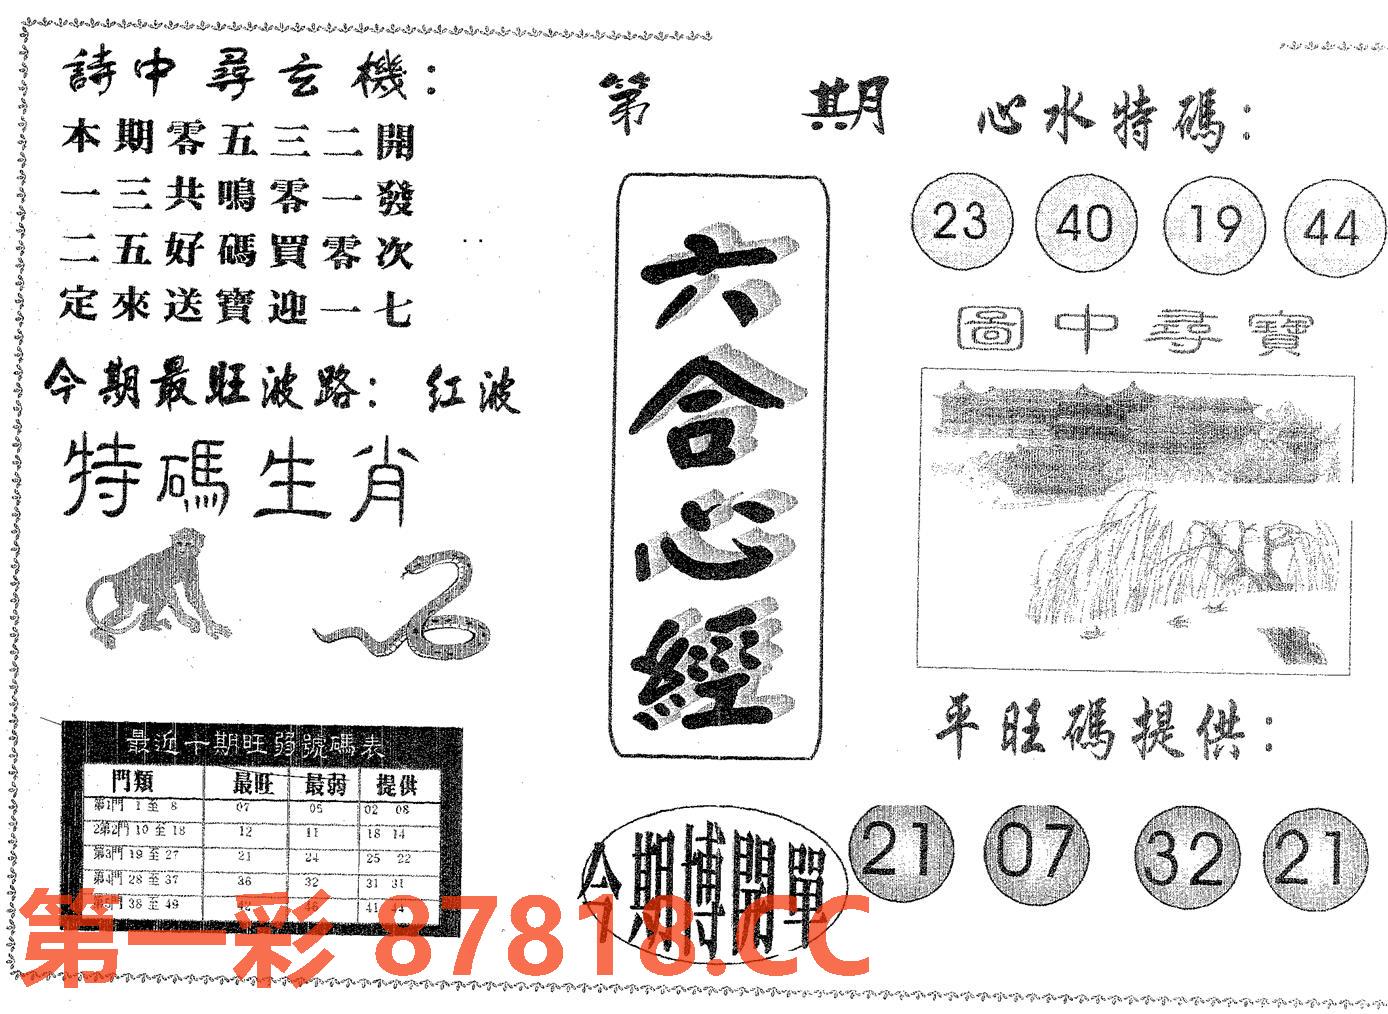 詩中尋玄機：
本期零五三二開
一三共鳴零一發
二五好碼買零次
定來送寶迎一七
今期最旺波路：红波
特碼生肖
最近十期旺弱號碼表
門類 最旺 最弱 提供
第1門 1 至 8 07 05 02 08
2第2門 10 至 18 12 11 18 14
第3門 19 至 27 21 24 25 22
第4門 28 至 37 36 32 31 31
第5門 38 至 49 42 46 41 44
第 期
六合心經
今期博開單
心水特碼：
23 40 19 44
圖中尋寶
平旺碼提供：
21 07 32 21
第一彩 87818.CC